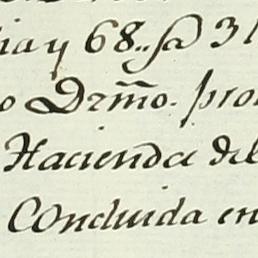 ia y 68.. fa 31
o Drm̃o. pro
Hacienda del
Concluida en